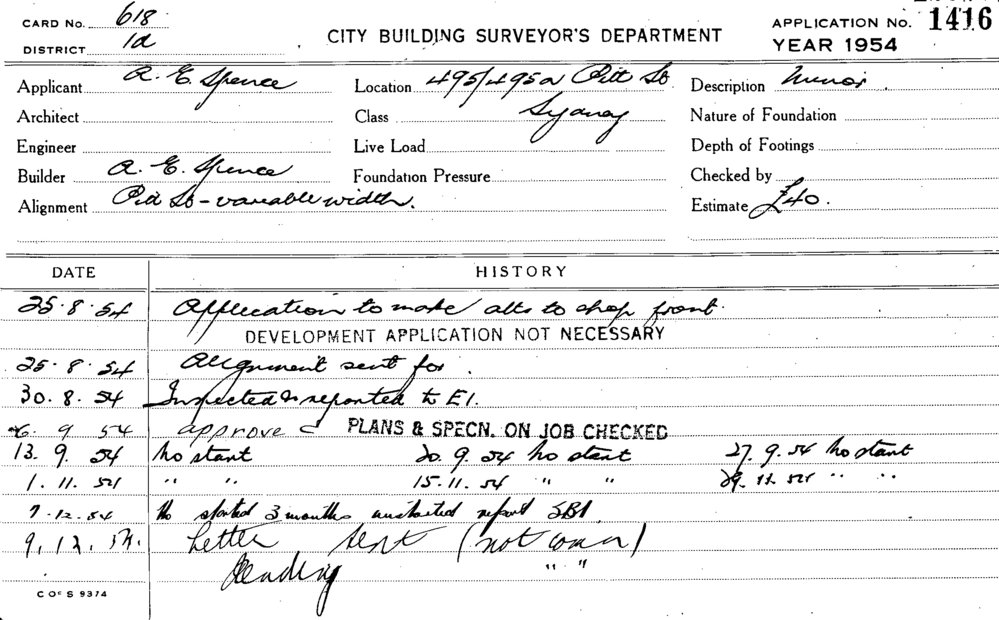 CARD No. 618
DISTRICT 1a
CITY BUILDING SURVEYOR'S DEPARTMENT
APPLICATION No. 1416
YEAR 1954
Applicant A. E. Spence
Location 495/495a Pitt St
Description Minor
Architect
Class Sydney
Nature of Foundation
Engineer
Live Load
Depth of Footings
Builder A. E. Spence
Foundation Pressure
Checked by
Alignment Pitt St - variable width.
Estimate £40.
DATE HISTORY
25.8.54 Application to make alts to shop front.
DEVELOPMENT APPLICATION NOT NECESSARY
25.8.54 Alignment sent for.
30.8.54 Inspected & reported to E1.
6. 9 54 approved PLANS & SPECN. ON JOB CHECKED
13. 9. 54 no start 20. 9. 54 no start 27. 9. 54 no start
1. 11. 54 " " 15. 11. 54 " " 29. 11. 54 " "
7.12.54 started 3 months report SB1.
9. 12. 54. Letter sent (not )
Pending " "
C OF S 9374